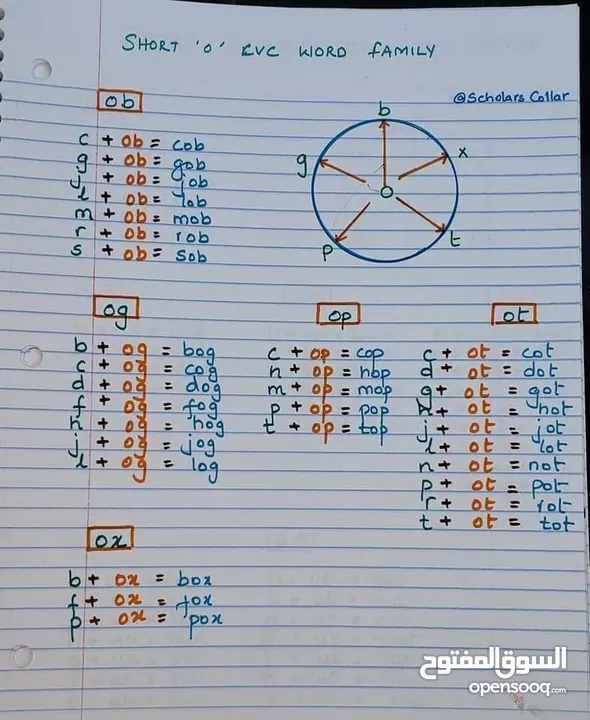 SHORT 'O' CVC WORD FAMILY
@Scholars Collar
ob
c + ob = cob
g + ob = gob
j + ob = job
l + ob = lob
m + ob = mob
r + ob = rob
s + ob = sob
b
g
x
o
p
t
og
b + og = bog
c + og = cog
d + og = dog
f + og = fog
h + og = hog
j + og = jog
l + og = log
op
c + op = cop
h + op = hop
m + op = mop
p + op = pop
t + op = top
ot
c + ot = cot
d + ot = dot
g + ot = got
h + ot = hot
j + ot = jot
l + ot = lot
n + ot = not
p + ot = pot
r + ot = rot
t + ot = tot
ox
b + ox = box
f + ox = fox
p + ox = pox
السوق المفتوح
opensooq.com